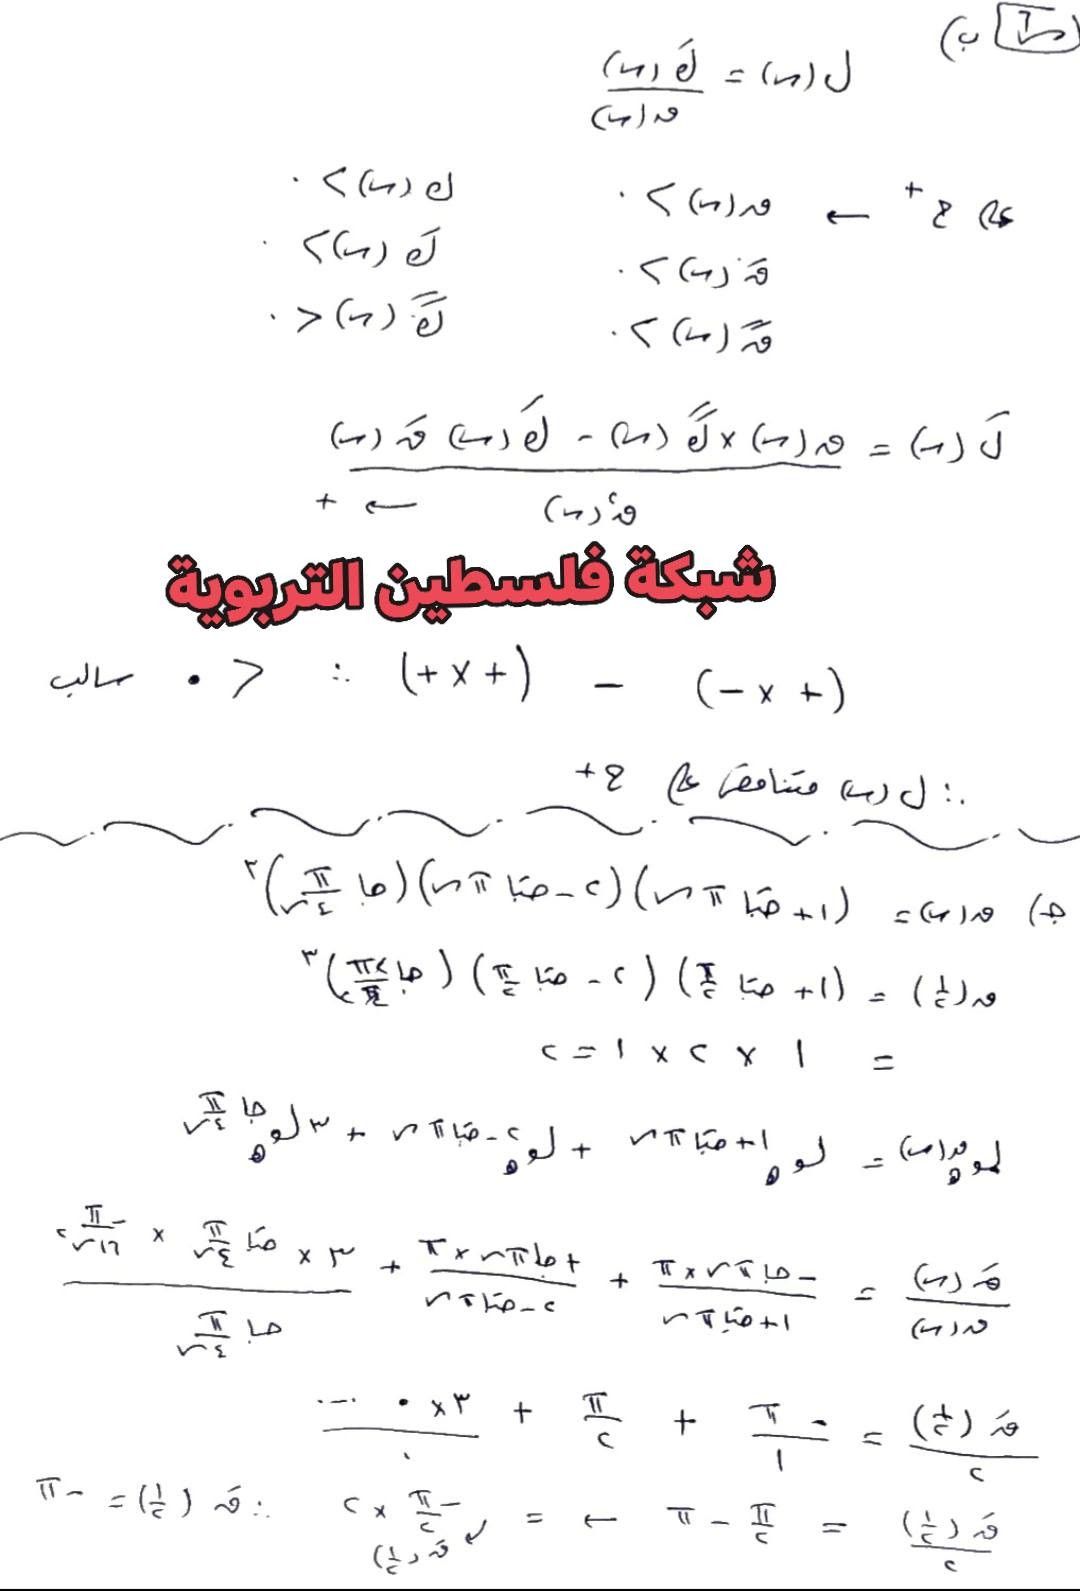 س٦ ب)
ل(س) = ك́(س) / ق(س)
على ح+ ← ق(س) > ٠ ك(س) > ٠
ق́(س) > ٠ ك́(س) > ٠
ق̋(س) > ٠ ك̋(س) < ٠
ل́(س) = ق(س) × ك̋(س) - ك́(س) ق́(س) / ق٢(س) ← +
شبكة فلسطين التربوية
(+ × -) - (+ × +) ∴ < ٠ سالب
∴ ل(س) متناقص على ح+
جـ) ق(س) = (١ + جتا π س)(٢ - جتا π س)(جا π/٤س)٣
ق(١/٢) = (١ + جتا π/٢)(٢ - جتا π/٢)(جا π٢/٤)٣
= ١ × ٢ × ١ = ٢
لوهـ ق(س) = لوهـ ١ + جتا π س + لوهـ ٢ - جتا π س + ٣ لوهـ جا π/٤س
ق́(س)/ق(س) = -جا π س × π / ١ + جتا π س + +جا π س × π / ٢ - جتا π س + ٣ × جتا π/٤س × -π/١٦س٢ / جا π/٤س
ق́(١/٢)/٢ = -π/١ + π/٢ + ٣ × ٠ .... / ١
ق́(١/٢)/٢ = π/٢ - π ← = -π/٢ × ٢ ∴ ق́(١/٢) = -π
ق́(١/٢)